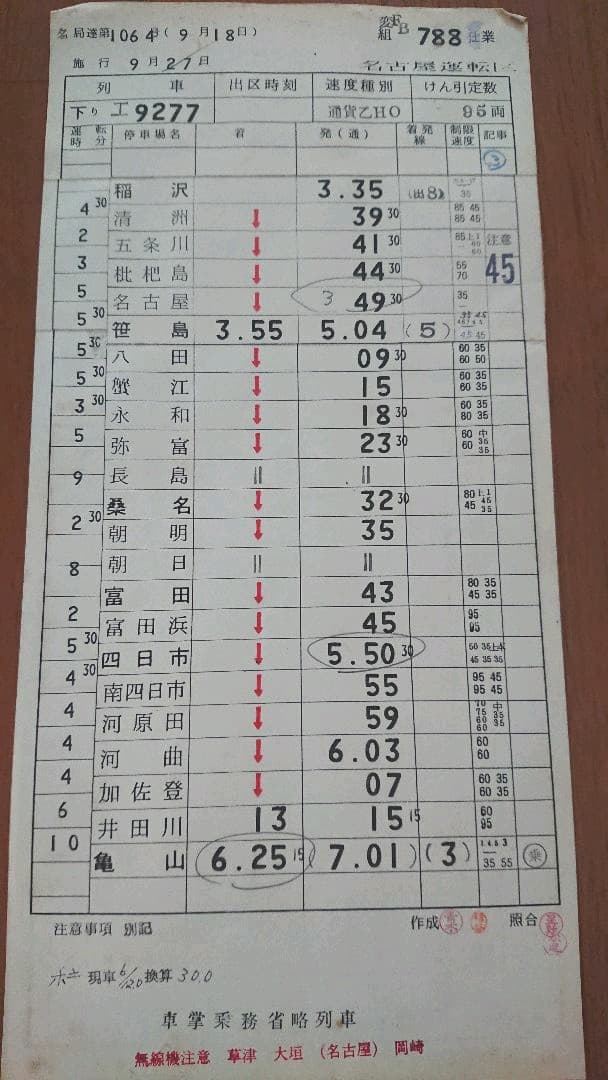 名局達第1064号(9月18日) 変FB組 788仕業
施行 9月27日 名古屋運転区
列車 出区時刻 速度種別 けん引定数
下り 工9277 通貨乙HO 95両
運転時分 停車場名 着 発(通) 着発線 制限速度 記事
③
稲沢 3.35 (出8)
4 30
清洲 ↓ 39 30 85 45 85 45
2
五条川 ↓ 41 30 注意
3
枇杷島 ↓ 44 30 55 70 45
5
名古屋 ↓ 3 49 30 35
5 30
笹島 3.55 5.04 (5)
5 30
八田 ↓ 09 30 60 35 60 50
5 30
蟹江 ↓ 15 60 35 60 35
3 30
永和 ↓ 18 30 60 35 80 35
5
弥富 ↓ 23 30 60 中 60 35 35
長島 || ||
9
桑名 ↓ 32 30 80 上1 45 45 35
2 30
朝明 ↓ 35
朝日 || ||
8
富田 ↓ 43 80 35 45 35
2
富田浜 ↓ 45 95 95
5 30
四日市 ↓ 5.50 30 45 35 35
4 30
南四日市 ↓ 55 95 45 95 45
4
河原田 ↓ 59 70 中 75 35 60 35 60
4
河曲 ↓ 6.03 60 60
4
加佐登 ↓ 07 60 35 60 35
6
井田川 13 15 15 60 95
10
亀山 6.25 15 (7.01) (3) 35 55 乗
注意事項 別記 作成 照合
現車6/120換算300
車掌乗務省略列車
無線機注意 草津 大垣 (名古屋) 岡崎